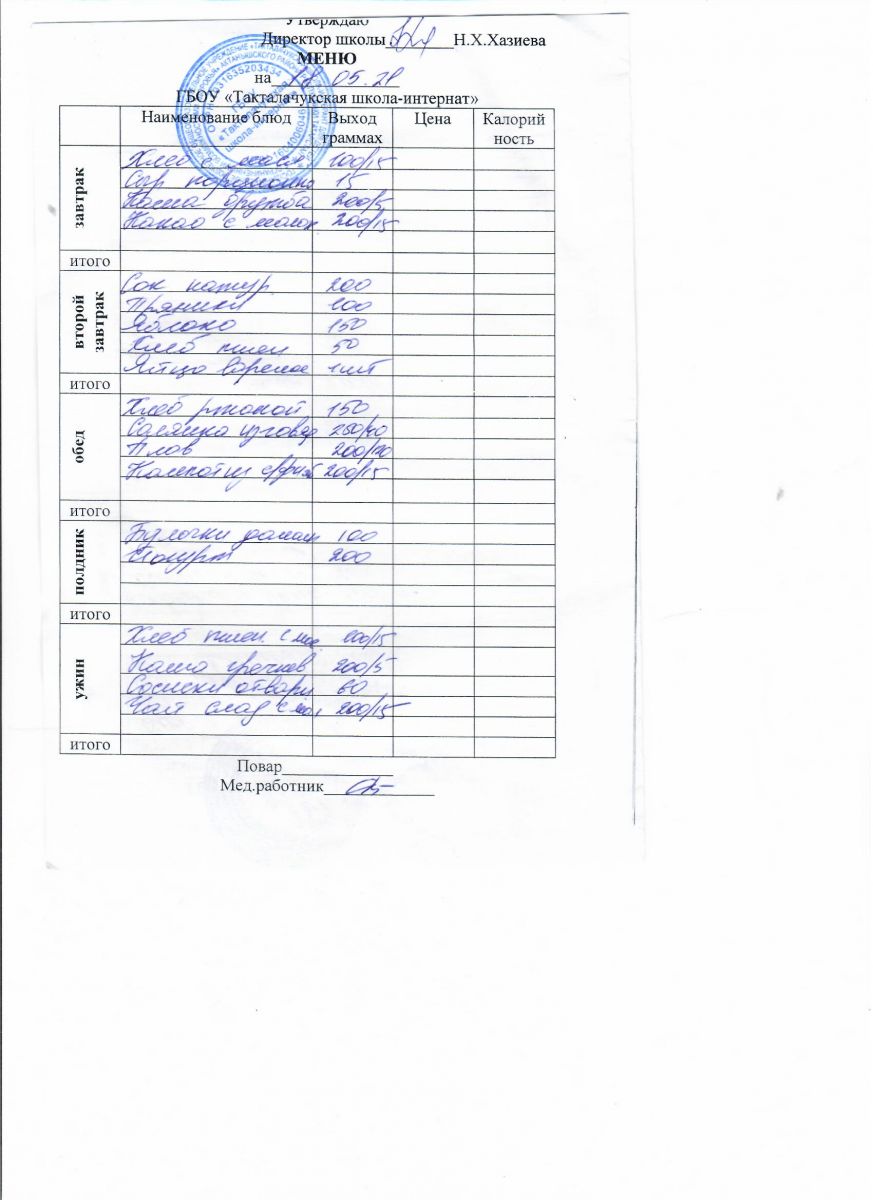 Утверждаю
Директор школы Н.Х.Хазиева
МЕНЮ
на 18.05.21
ГБОУ «Такталачукская школа-интернат»
Наименование блюд Выход граммах Цена Калорий ность
завтрак
Хлеб с маслом 100/15
Сыр порционно 15
Каша дружба 200/5
Какао с молок 200/15
итого
второй завтрак
Сок натур. 200
Пряники 100
Яблоко 150
Хлеб пшен 50
Яйцо вареное 1шт
итого
обед
Хлеб ржаной 150
Солянка из говяд 250/40
Плов 200/120
Компот из с/фрукт 200/15
итого
полдник
Булочки домаш 100
Йогурт 200
итого
ужин
Хлеб пшен. с мас. 100/15
Каша гречнев 200/5
Сосиски отварн 60
Чай слад с мол 200/15
итого
Повар
Мед.работник